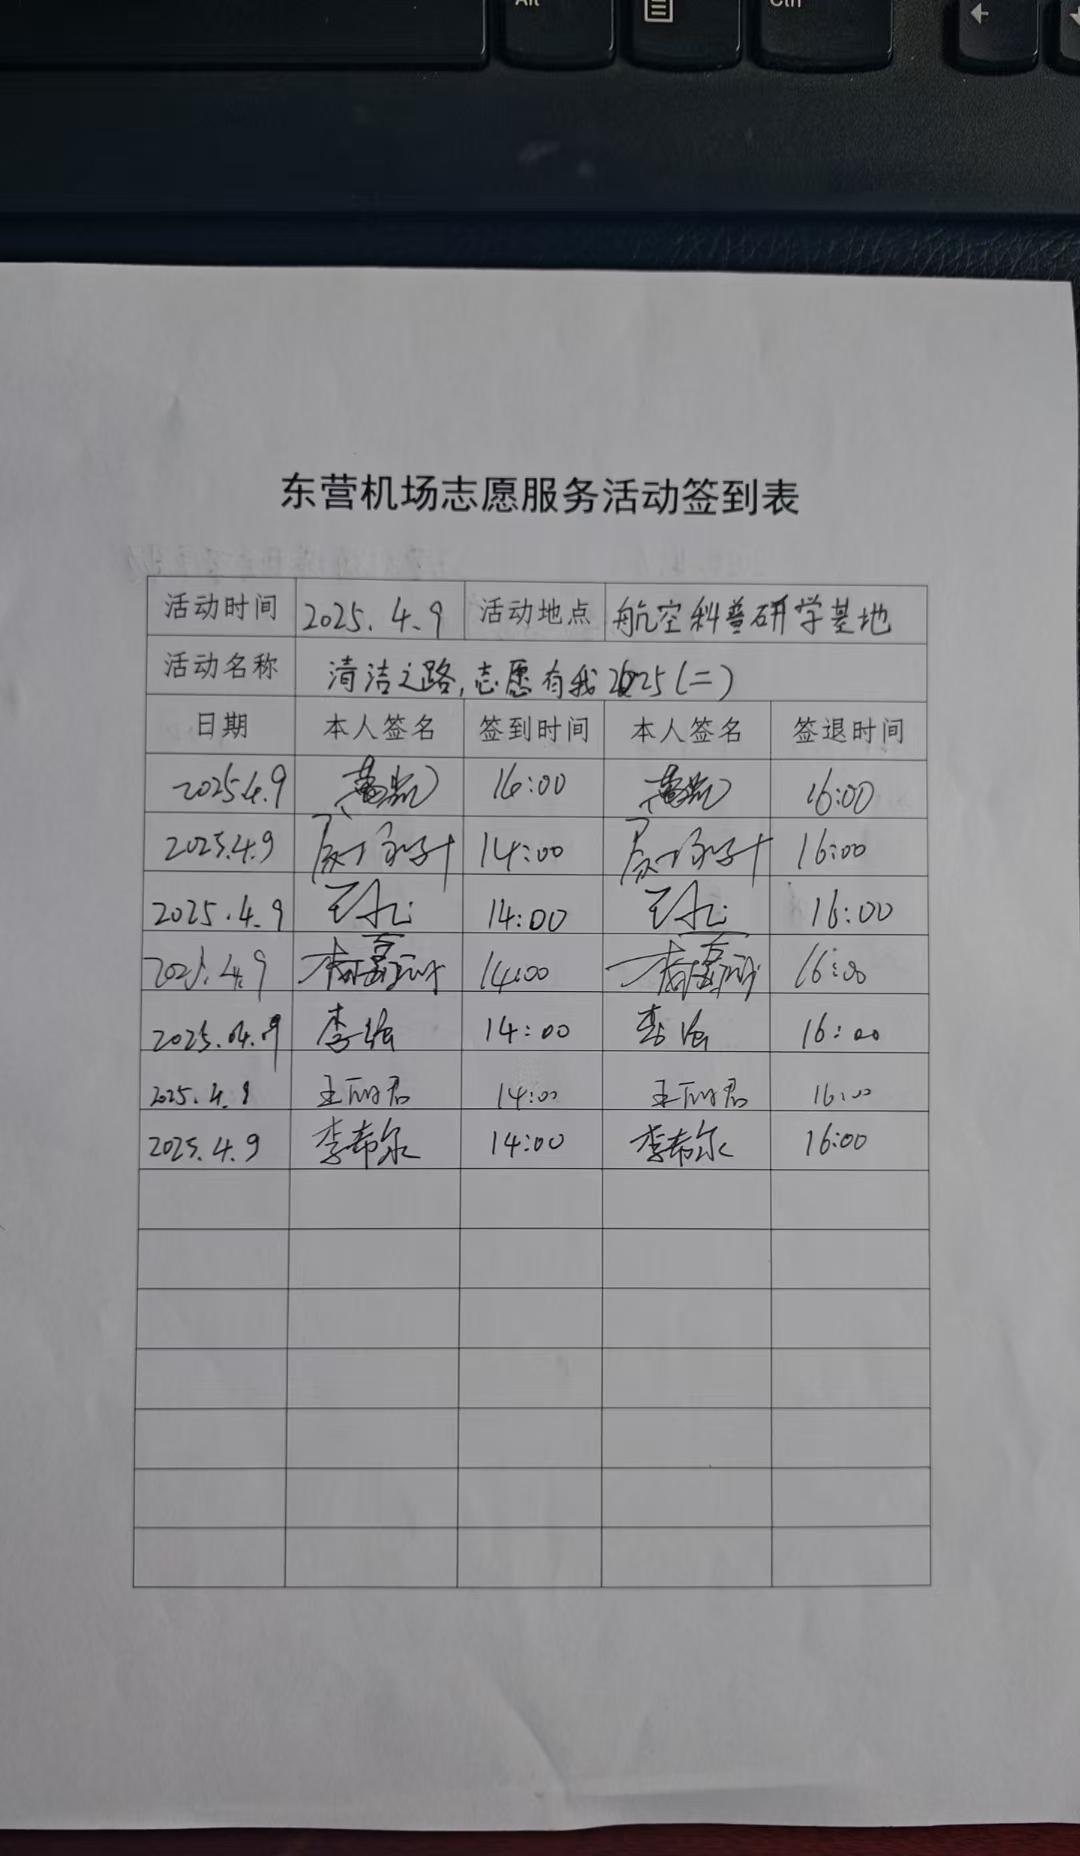 Alt
Ctrl
东营机场志愿服务活动签到表
活动时间 2025.4.9 活动地点 航空科普研学基地
活动名称 清洁之路,志愿有我2025(二)
日期 本人签名 签到时间 本人签名 签退时间
2025.4.9 黄凯 16:00 黄凯 16:00
2025.4.9 14:00 16:00
2025.4.9 14:00 16:00
2025.4.9 14:00 16:00
2025.04.9 李 14:00 李 16:00
2025.4.9 王丽君 14:00 王丽君 16:00
2025.4.9 李希尔 14:00 李希尔 16:00